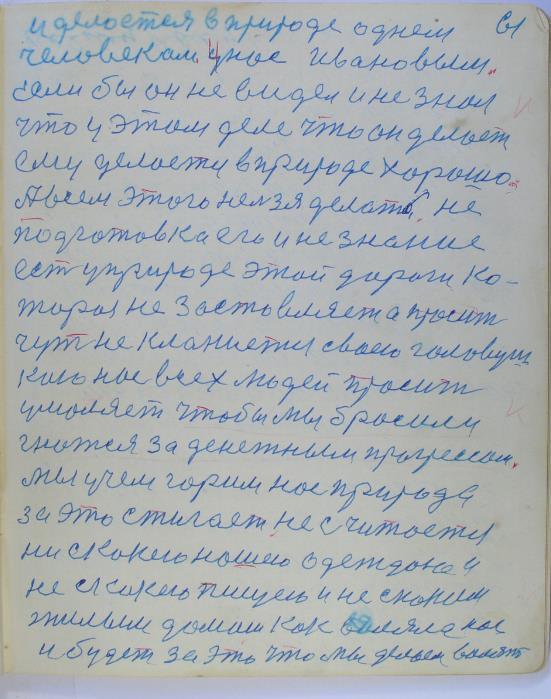 61
и делоется в природе однем
человекам, унас Ивановым.
Если бы он не видел и не знал
что у этом деле что он делоет
ему делоети в природе хорошо.
А всем этого нелзя делать, не
подготовка его и не знание
ест у природе этой дороги ко-
торая не застовляет а просит
чут не кланиетси своею головуш
кою нас всех людей просит
умоляет чтобы мы бросили
гнатся за денежным прогрессом.
Мы учем горим нас природа
за это стигает, не считоети
ни скокею нашею одеждоней
не скокею пищею и не скоким
жилым домом как валяла нас
и будет за это что мы делоем валят